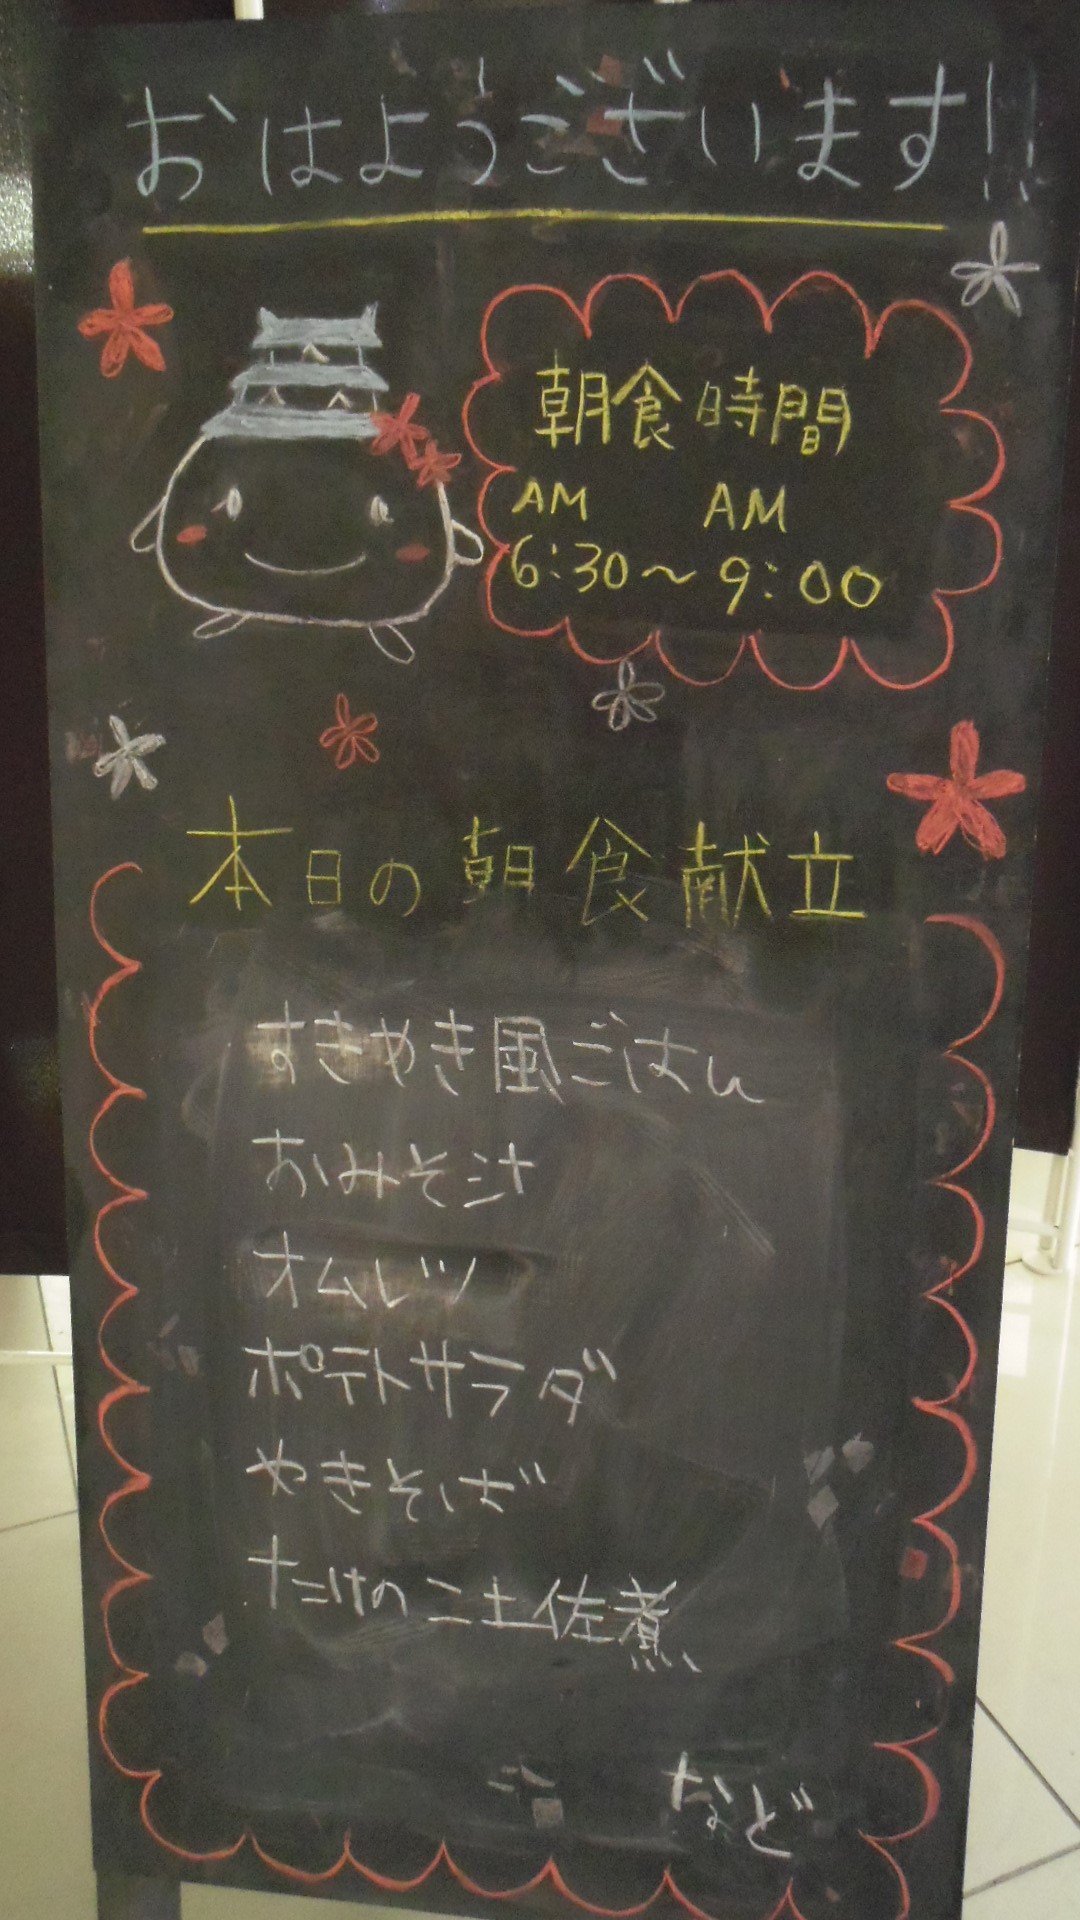 おはようございます!!
朝食時間
AM AM
6:30～9:00
本日の朝食献立
すきやき風ごはん
おみそ汁
オムレツ
ポテトサラダ
やきそば
たけのこ土佐煮
など